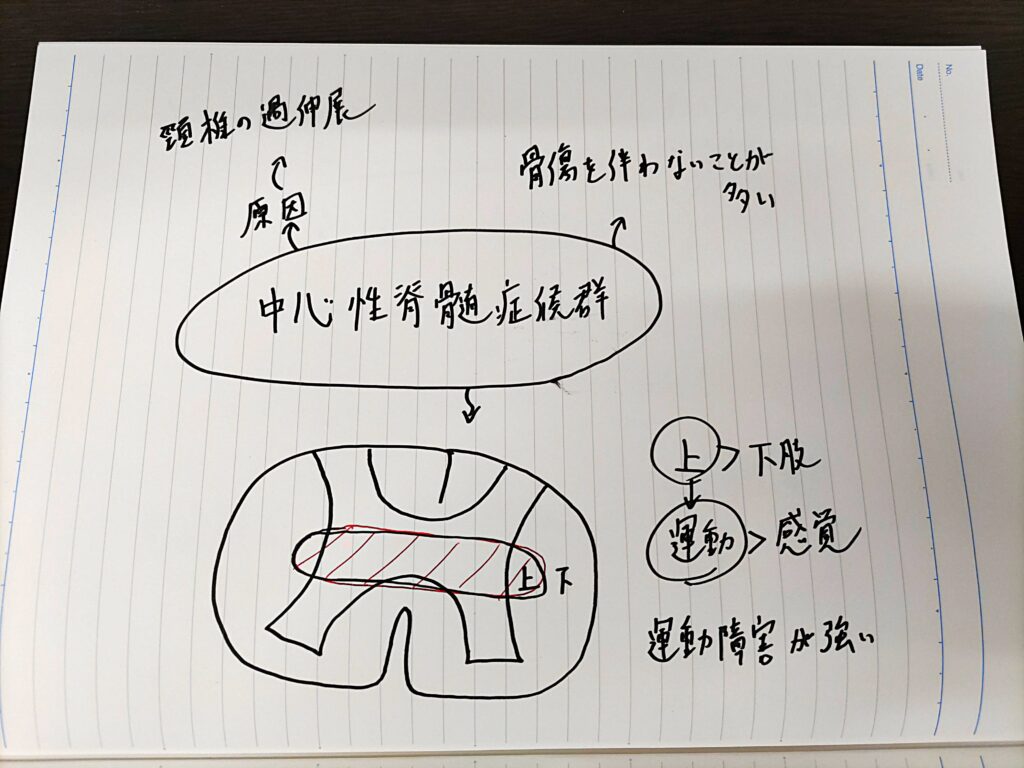 No.
Date
頸椎の過伸展
原因
骨傷を伴わないことが
多い
中心性脊髄症候群
上 > 下肢
運動 > 感覚
運動障害が強い
上 下